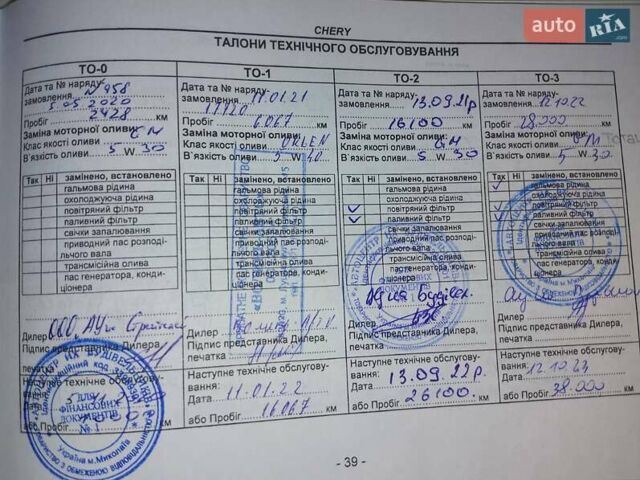 auto RIA.com
CHERY
ТАЛОНИ ТЕХНІЧНОГО ОБСЛУГОВУВАННЯ
ТО-0
Дата та № наряду-
замовлення № 958
5.05 2020
Пробіг 2428 км
Заміна моторної оливи:
Клас якості оливи GM
В`язкість оливи 5 W 30
Так Ні замінено, встановлено
гальмова рідина
охолоджуюча рідина
повітряний фільтр
паливний фільтр
свічки запалювання
приводний пас розподі-
льчого вала
трансмісійна олива
пас генератора, конди-
ціонера
Дилер
Підпис представника Дилера,
печатка
Наступне технічне обслугову-
або Пробіг км
ТО-1
Дата та № наряду-
замовлення 11.01.21
17120
Пробіг 6067 км
Заміна моторної оливи:
Клас якості оливи ORLEN
В`язкість оливи 5 W 40
Так Ні замінено, встановлено
гальмова рідина
охолоджуюча рідина
повітряний фільтр
паливний фільтр
свічки запалювання
приводний пас розподі-
льчого вала
трансмісійна олива
пас генератора, конди-
ціонера
Дилер
Підпис представника Дилера,
печатка
Наступне технічне обслугову-
вання:
Дата 11.01.22
або Пробіг 16067 км
ТО-2
Дата та № наряду-
замовлення 13.09.21р
Пробіг 16100 км
Заміна моторної оливи:
Клас якості оливи GM
В`язкість оливи 5 W 30
Так Ні замінено, встановлено
гальмова рідина
охолоджуюча рідина
повітряний фільтр
паливний фільтр
свічки запалювання
приводний пас розподі-
льчого вала
трансмісійна олива
пас генератора, конди-
ціонера
Дилер
Підпис представника Дилера,
печатка
Наступне технічне обслугову-
вання:
Дата 13.09.22р
або Пробіг 26100 км
ТО-3
Дата та № наряду-
замовлення 12.10.22
Пробіг 28000 км
Заміна моторної оливи:
Клас якості оливи GM
В`язкість оливи 5 W 30
Так Ні замінено, встановлено
гальмова рідина
охолоджуюча рідина
повітряний фільтр
паливний фільтр
свічки запалювання
приводний пас розподі-
льчого вала
трансмісійна олива
пас генератора, конди-
ціонера
Дилер
Підпис представника Дилера,
печатка
Наступне технічне обслугову-
вання:
Дата 12.10.23
або Пробіг 38000 км
ДЛЯ
ФІНАНСОВИХ
ДОКУМЕНТІВ
№ 1
Україна м.Миколаїв
- 39 -